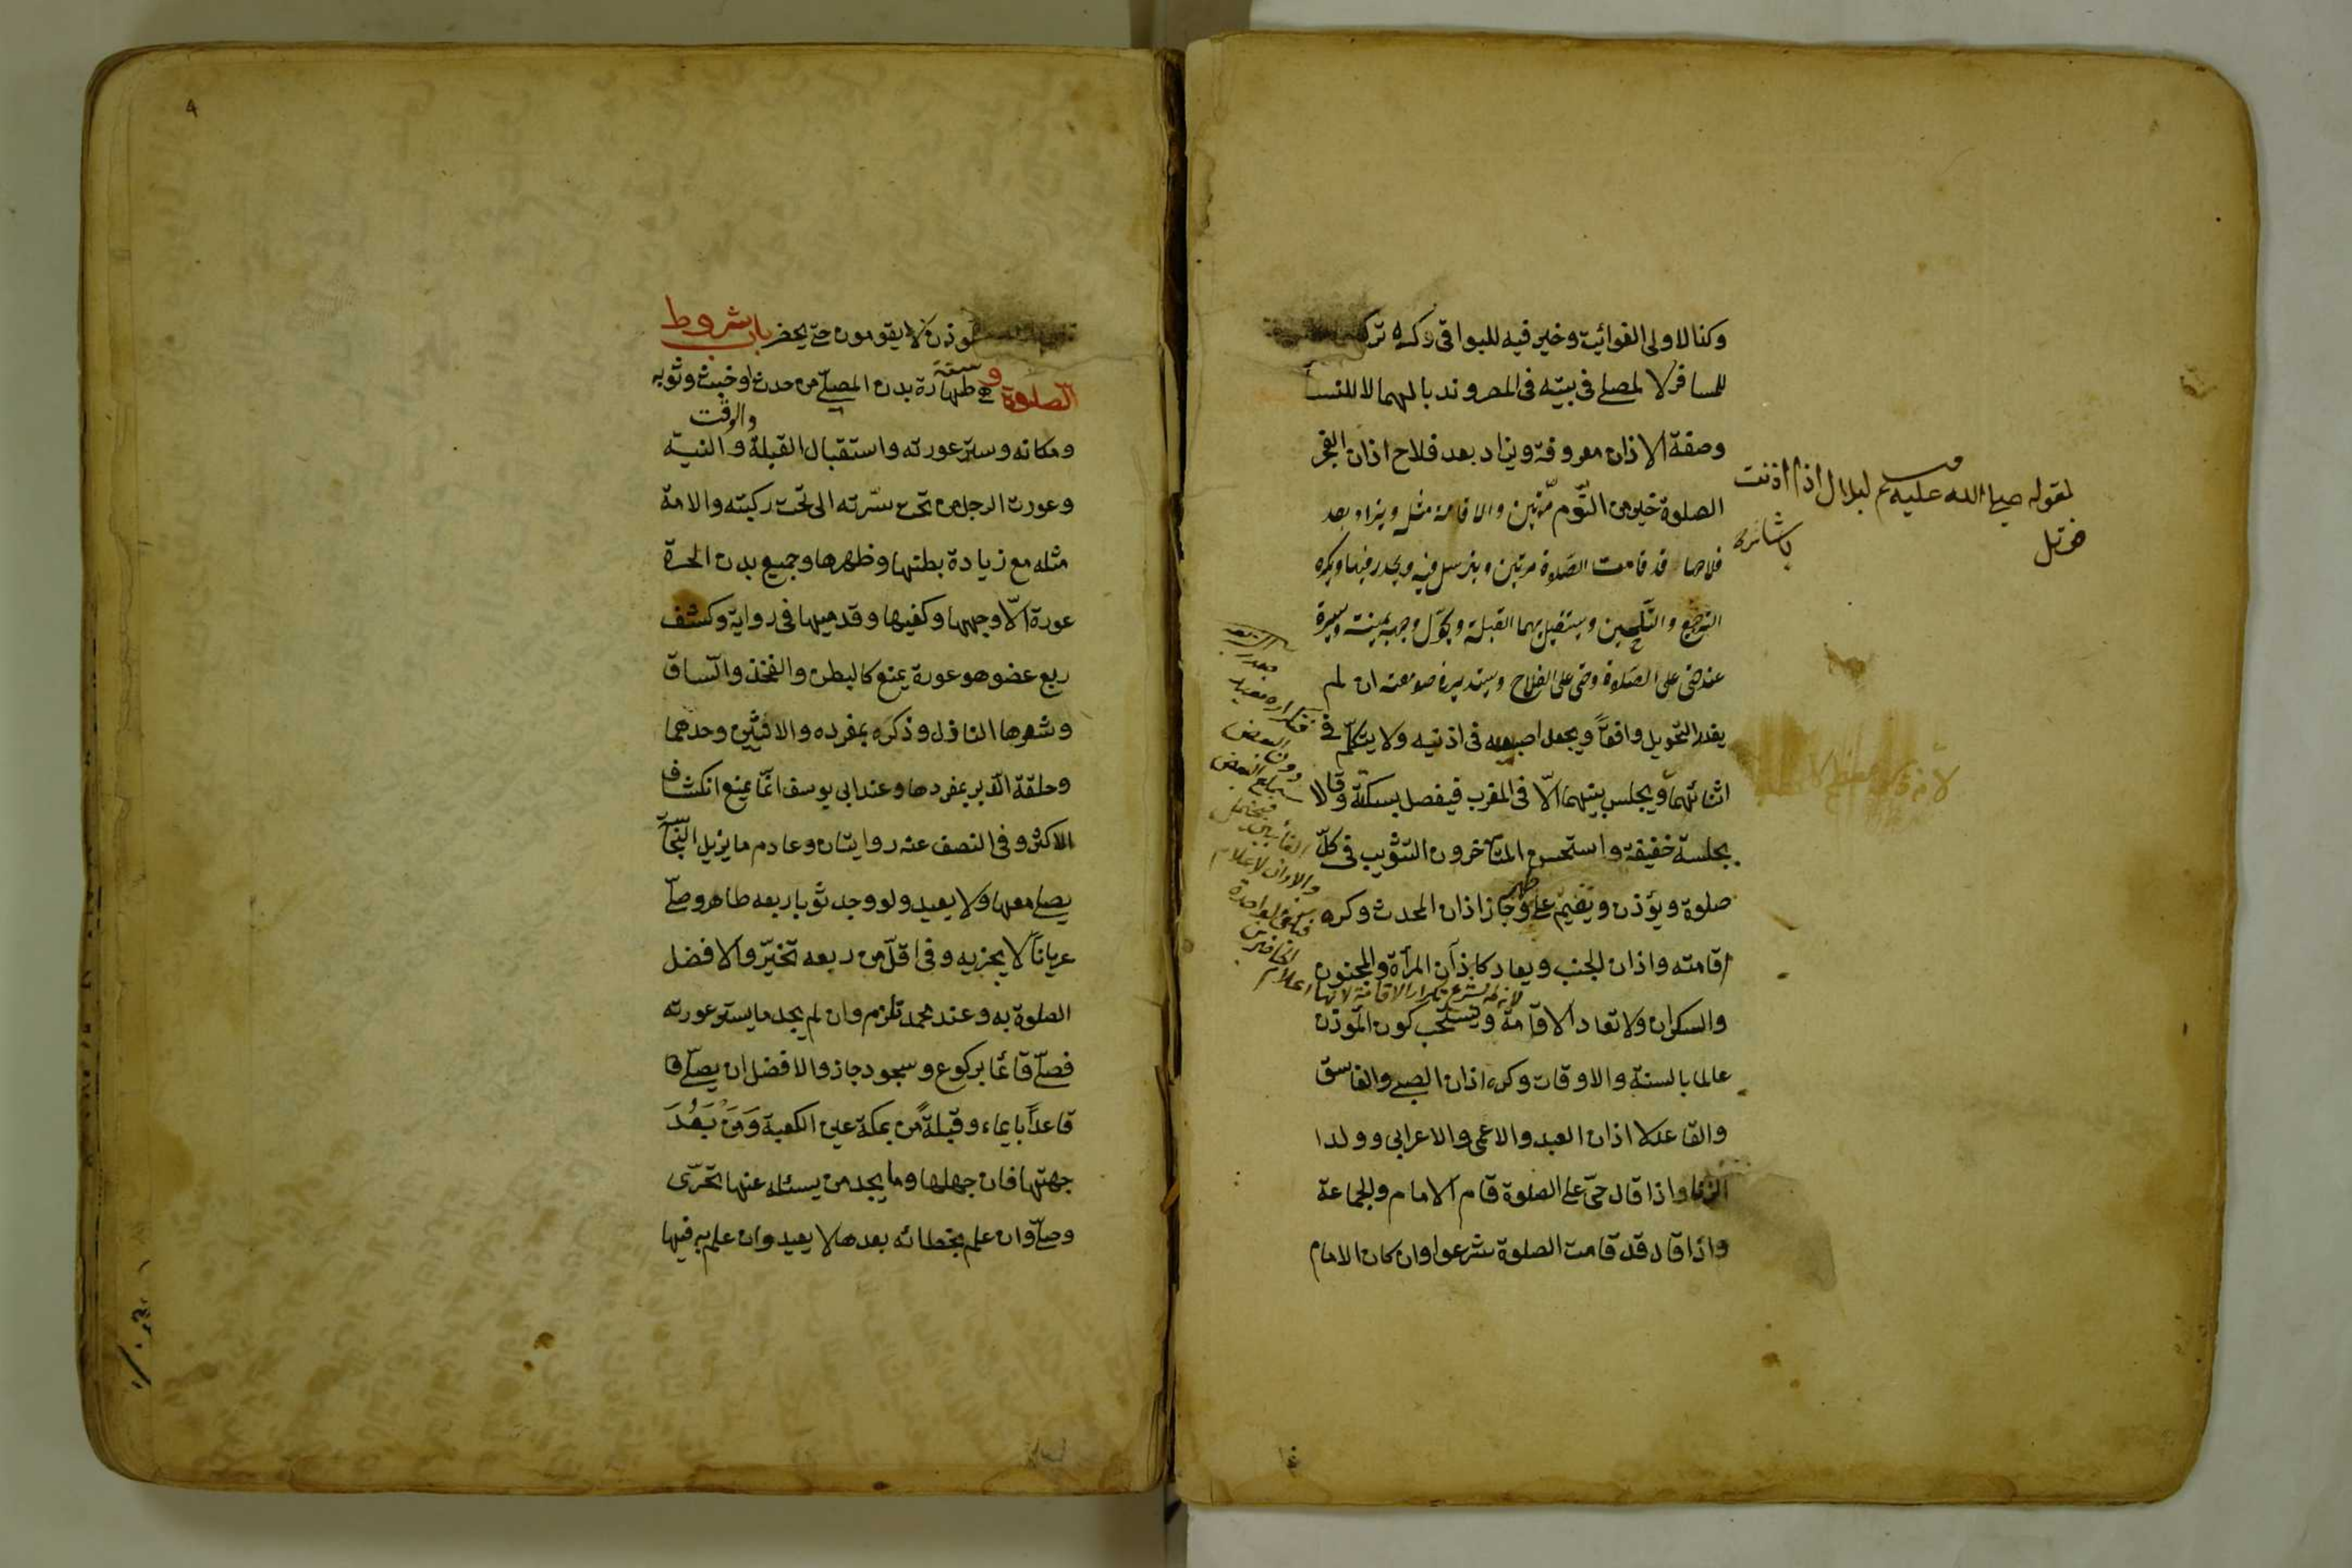 وكذا لاولى الفوائت وخير فيه للبواقى وكره تركهما
للمسافر لا لمصلى فى بيته فى المصر وندبا لهما لا للنساء
وصفة الاذان معروفة ويزاد بعد فلاح اذان الفجر
الصلوة خير من النوم مرّتين والاقامة مثله ويزاد بعد
فلاحها قد قامت الصّلوة مرتين ويترسل فيه ويحدر فيها ويكره
الترجيع والتّلحين ويستقبل بهما القبلة ويحوّل وجهه يمينة ويسرة
عند حى على الصّلوة وحى على الفلاح ويستدير فى صومعته ان لم
يقدر التحويل واقفاً ويجعل اصبعيه فى اذنيه ولا يتكلّم فى
اثنائهما ويجلس بينهما الّا فى المغرب فيفصل بسكتة وقالا
بجلسة خفيفة واستحسن المتأخرون التثويب فى كلّ
صلوة ويؤذن ويقيم على طهر وجاز اذان المحدث وكره
اقامته واذان الجنب ويعاد كاذان المرأة والمجنون
لانه لم يشرع تكرار الاقامة لانها اعلام
والسكران ولا تعاد الاقامة ويستحب كون المؤذن
عالما بالسنة والاوقات وكره اذان الصبى والفاسق
والقاعد لا اذان العبد والاعمى والاعرابى وولد ا
الزنا واذا قال حىّ على الصلوة قام الامام والجماعة
واذا قال قد قامت الصلوة شرعوا وان كان الامام
لقوله صلى الله عليه وسلم لبلال اذا اذنت
فترتل
الحاضرين
المؤذن لا يقومون حتى يحضر باب شروط
الصلوة هى ستة طهارة بدن المصلّى من حدث او خبث وثوبه
والوقت
ومكانه وستر عورته واستقبال القبلة والنية
وعورت الرجل من تحت سرّته الى تحت ركبته والامة
مثله مع زيادة بطنها وظهرها وجميع بدن الحرة
عورة الّا وجهها وكفيها وقدميها فى رواية وكشف
ربع عضو هو عورة يمنع كالبطن والفخذ والسّاق
وشعرها النازل وذكره بمفرده والانثيين وحدهما
وحلقة الدّبر بمفردها وعند ابى يوسف انّما يمنع انكشاف
الاكثر وفى النصف عنه روايتان وعادم ما يزيل النّجاسة
يصلى معها ولا يعيد ولو وجد ثوبا ربعه طاهر وصلّى
عرياناً لا يجزيه وفى اقلّ من ربعه تخيّر والافضل
الصلوة به وعند محمد تلزم وان لم يجد ما يستر عورته
فصلّى قائما بركوع وسجود جاز والافضل ان يصلّى قا
قاعداً بايماء وقبلة من بمكة عين الكعبة وَمَنْ بَعُدَ
جهتها فان جهلها وما يجد من يسئله عنها تحرّى
وصلّى وان علم بخطائه بعدها لا يعيد وان علم به فيها